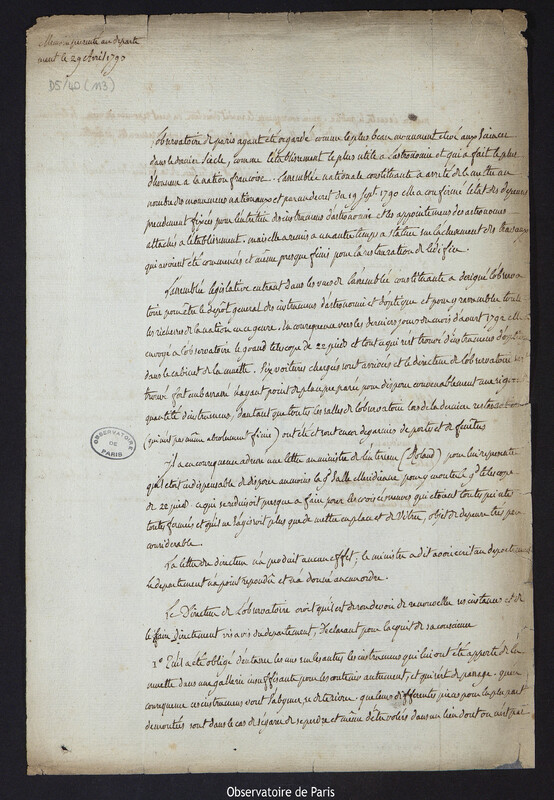 Memoire presenté au departe
ment le 29 Avril 1793
D5/40 (113)
L'observatoire de paris ayant été regardé comme le plus beau monument elevé aux sciences
dans le dernier siecle, comme l'etablissement le plus utile a l'astronomie et qui a fait le plus
d'honneur a la nation françoise. l'assemblée nationale constituante a arreté de la mettre au
nombre des monumens nationaux et par un decret du 19 sept. 1790 elle a confirmé l'etat des depenses
prudement fixés pour l'entretien des instrumens d'astronomie et les appointemens des astronomes
attachés a l'etablissement. mais elle a remis a un autre temps a statuer sur l'achevement des travaux
qui avoient été commencés et même presque finis pour la restauration de l'edifice.
L'assemblée legislative entrant dans les vues de l'assemblée constituante a designé l'observa
toire pour être le depôt general des instrumens d'astronomie et d'optique et pour y rassembler toutes
les richesses de la nation en ce genre. En consequence vers les derniers jours du mois d'aoust 1792 elle
envoyé a l'observatoire le grand telescope de 22 pieds et tout ce qui s'est trouvé d'instrumens d'optique
dans le cabinet de la muette. Six voitures chargées sont arrivées et le directeur de l'observatoire s'est
trouvé fort embarrassé n'ayant point de place preparée pour disposer convenablement une si grande
quantité d'instrumens, d'autant que toutes les salles de l'observatoire lors de la derniere restauration
(qui n'est pas même absolument finie) ont été et sont encore degarnies de portes et de fenêtres
Il a en consequence adressé une lettre au ministre de l'interieur (Roland) pour lui representer
qu'il etoit indispensable de disposer au moins la gde Salle Meridienne pour y monter le gd telescope
de 22 pieds. ce qui se reduisoit presque a faire poser les croisées neuves qui etoient toutes prêtes
toutes ferrées et qu'il ne s'agissoit plus que de mettre en place et de vitrer, objet de depense très peu
considerable.
La lettre du directeur n'a produit aucun effet; le ministre a dit avoir ecrit au departement
le departement n'a point repondu et n'a donné aucun ordre.
Le Directeur de l'observatoire croit qu'il est de son devoir de renouveller ses instances et de
le faire directement vis a vis du departement, declarant pour l'acquit de sa conscience
1° Qu'il a été obligé d'entasser les uns sur les autres les instrumens qui lui ont été apporté de la
muette dans une gallerie insuffisante pour les contenir autrement, et qui sert de passage. qu'en
consequence ces instrumens vont s'abymer, se deteriorer. que leurs differentes pieces pour la plus part
demontées sont dans le cas de s'egarer de se perdre et même d'être volées dans un lieu dont on n'est pas
OBSERVATOIRE DE PARIS
Observatoire de Paris